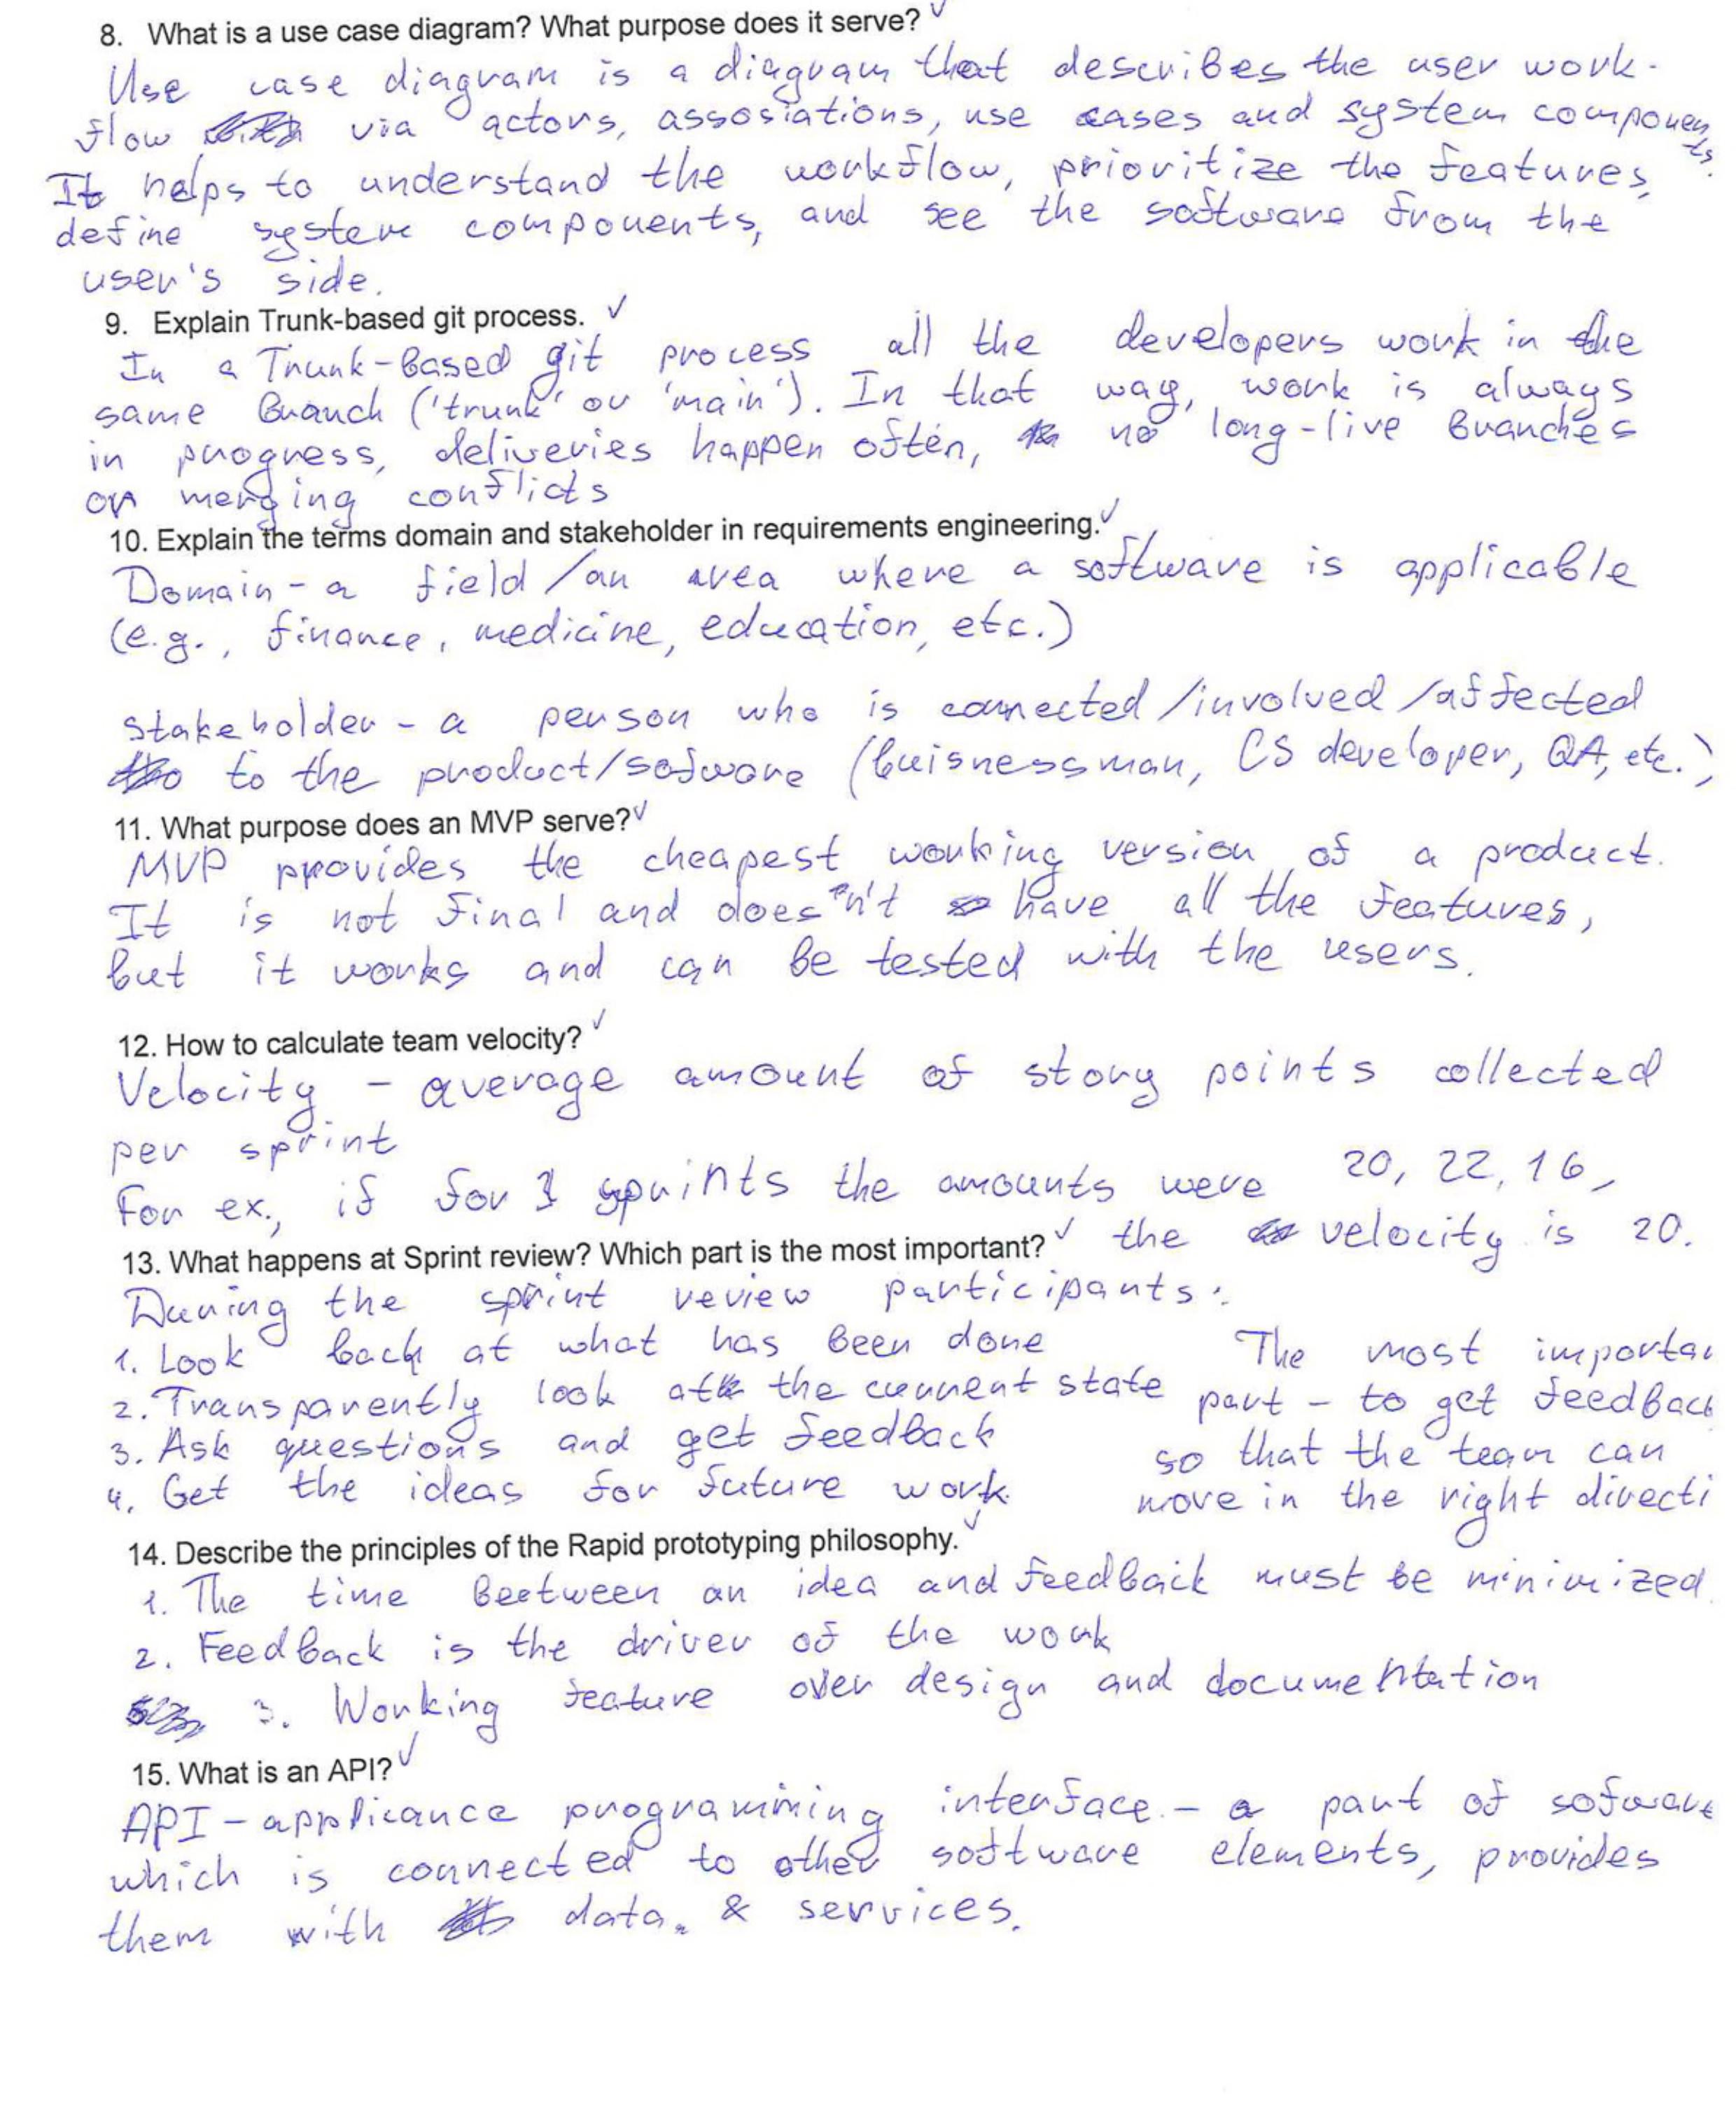 8. What is a use case diagram? What purpose does it serve? ✓
Use case diagram is a diagram that describes the user work-
flow via actors, assosiations, use cases and system components.
It helps to understand the workflow, prioritize the features,
define system components, and see the software from the
user's side.
9. Explain Trunk-based git process. ✓
In a Trunk-based git process all the developers work in the
same branch ('trunk' or 'main'). In that way, work is always
in progress, deliveries happen often, no long-live branches
or merging conflicts
10. Explain the terms domain and stakeholder in requirements engineering. ✓
Domain - a field/an area where a software is applicable
(e.g., finance, medicine, education, etc.)
Stakeholder - a person who is connected/involved/affected
to the product/sofware (buisnessman, CS developer, QA, etc.)
11. What purpose does an MVP serve? ✓
MVP provides the cheapest working version of a product.
It is not final and doesn't have all the features,
but it works and can be tested with the users.
12. How to calculate team velocity? ✓
Velocity - average amount of story points collected
per sprint
For ex., if for 3 sprints the amounts were 20, 22, 16,
the velocity is 20.
13. What happens at Sprint review? Which part is the most important? ✓
During the sprint review participants:
1. Look back at what has been done
2. Transparently look at the current state
3. Ask questions and get feedback
4. Get the ideas for future work.
The most importa
part - to get feedback
so that the team can
move in the right directi
14. Describe the principles of the Rapid prototyping philosophy. ✓
1. The time beetween an idea and feedback must be minimized.
2. Feedback is the driver of the work
3. Working feature over design and documentation
15. What is an API? ✓
API - applicance programming interface - a part of sofware
which is connected to other software elements, provides
them with data & services.